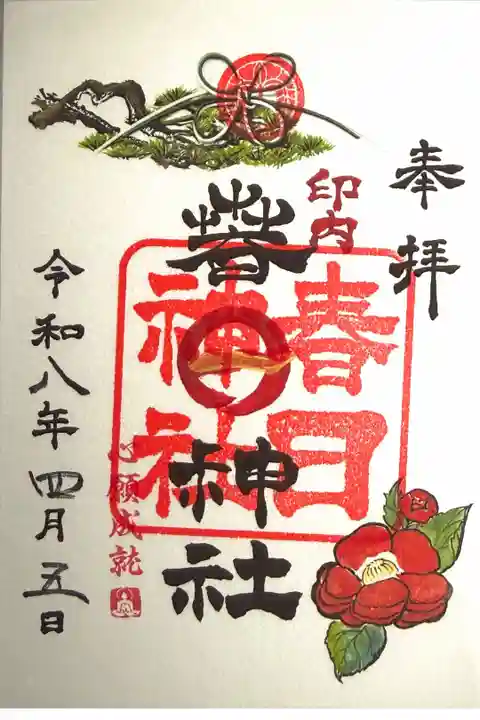 奉拝
印内
春日
神社
萅日神社
心願成就
令和八年四月五日